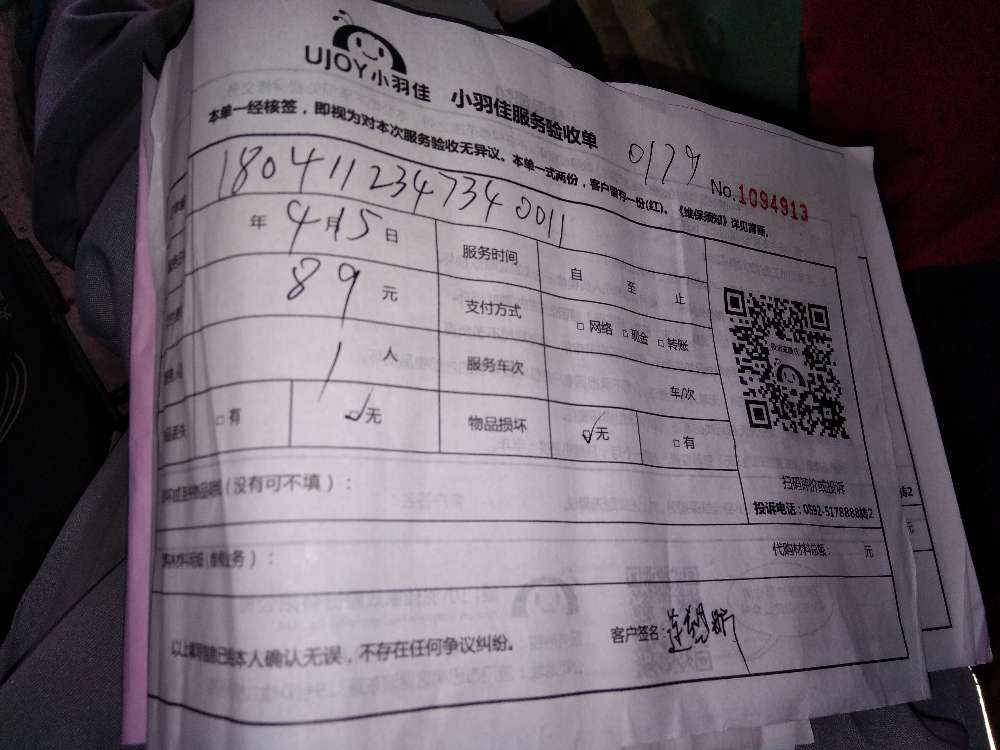 UJOY小羽佳 小羽佳服务验收单
本单一经核签，即视为对本次服务验收无异议。本单一式两份，客户留存一份(红)。《维保须知》详见背面。
0179 No.1094913
180411234734 0011
年 4月15日 服务时间 自 至 止
89 元 支付方式 □网络 □现金 □转账
1 人 服务车次 车/次
□有 ☑无 物品损坏 ☑无 □有
(没有可不填)：
扫码评价或投诉
投诉电话：0592-5178888转2
代购材料总额： 元
本人确认无误，不存在任何争议纠纷。
客户签名：
转2
元